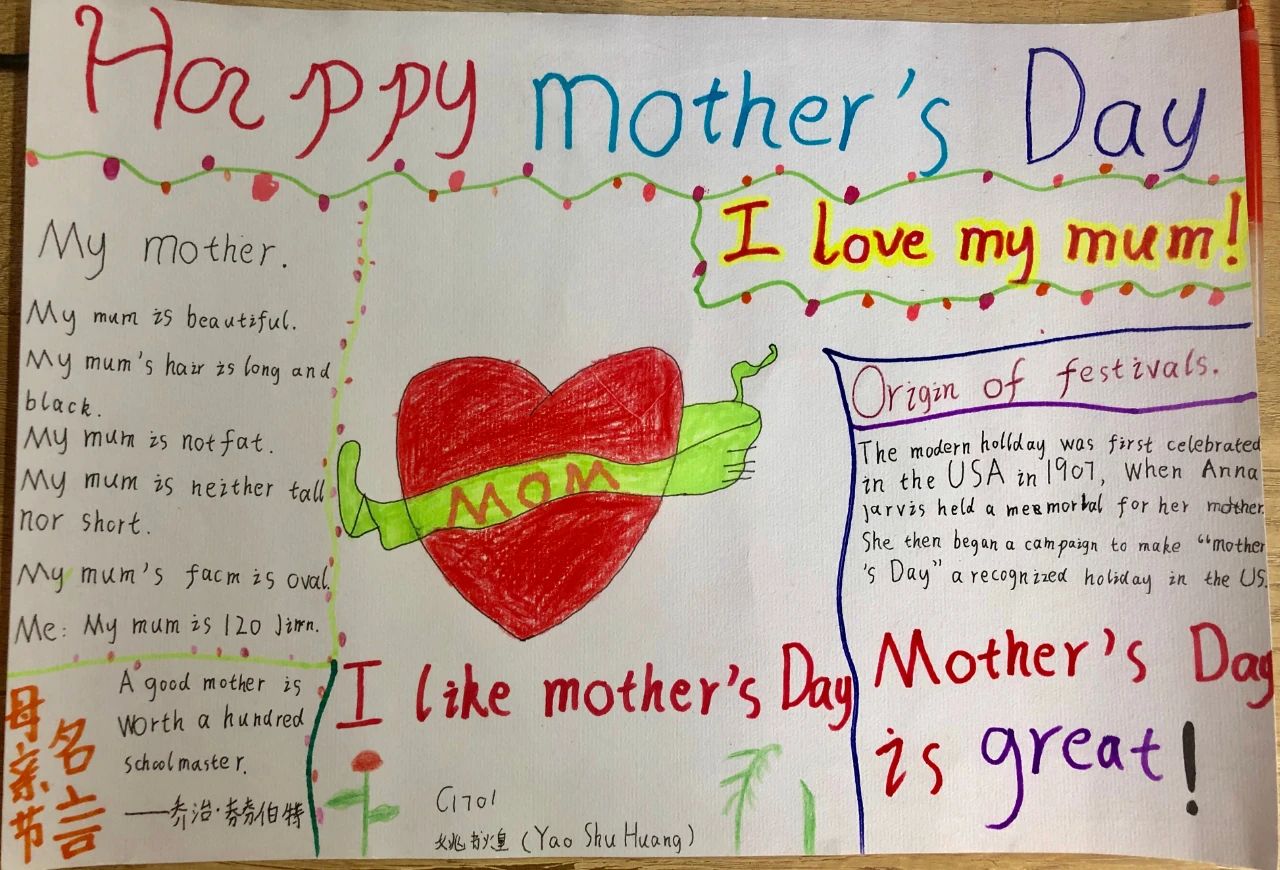 Happy mother's Day
I love my mum!
My mother.
My mum is beautiful.
My mum's hair is long and
black.
My mum is not fat.
My mum is neither tall
nor short.
My mum's facm is oval.
Me: My mum is 120 Jinn.
母亲节
名言
A good mother is
worth a hundred
schoolmaster.
——乔治·赫伯特
MOM
I like mother's Day
C1701
姚书煌 (Yao Shu Huang)
Origin of festivals.
The modern holiday was first celebrated
in the USA in 1907, when Anna
Jarvis held a memorial for her mother.
She then began a campaign to make "mother
's Day" a recognized holiday in the US.
Mother's Day
is great!